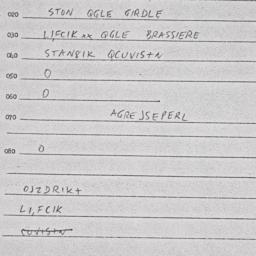 020 STON QGLE GIRDLE
030 LIFCIK xx QGLE BRASSIERE
040 STANGIK QCUVISTN
050 0
060 0
070 AGREJSEPERL
080 0
OJZDRIKT
LI,FCIK
CUVISTN